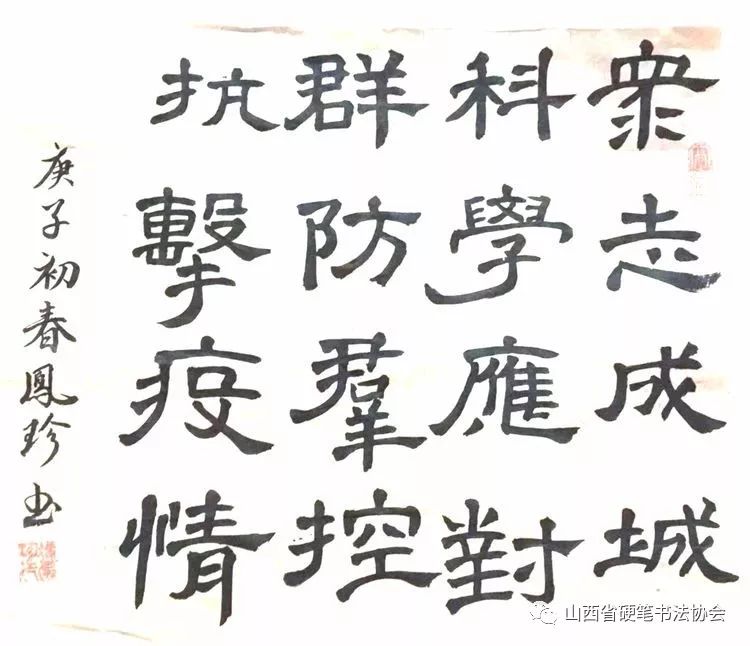 衆志成城
科學應對
群防羣控
抗擊疫情
庚子初春鳳珍书
山西省硬笔书法协会